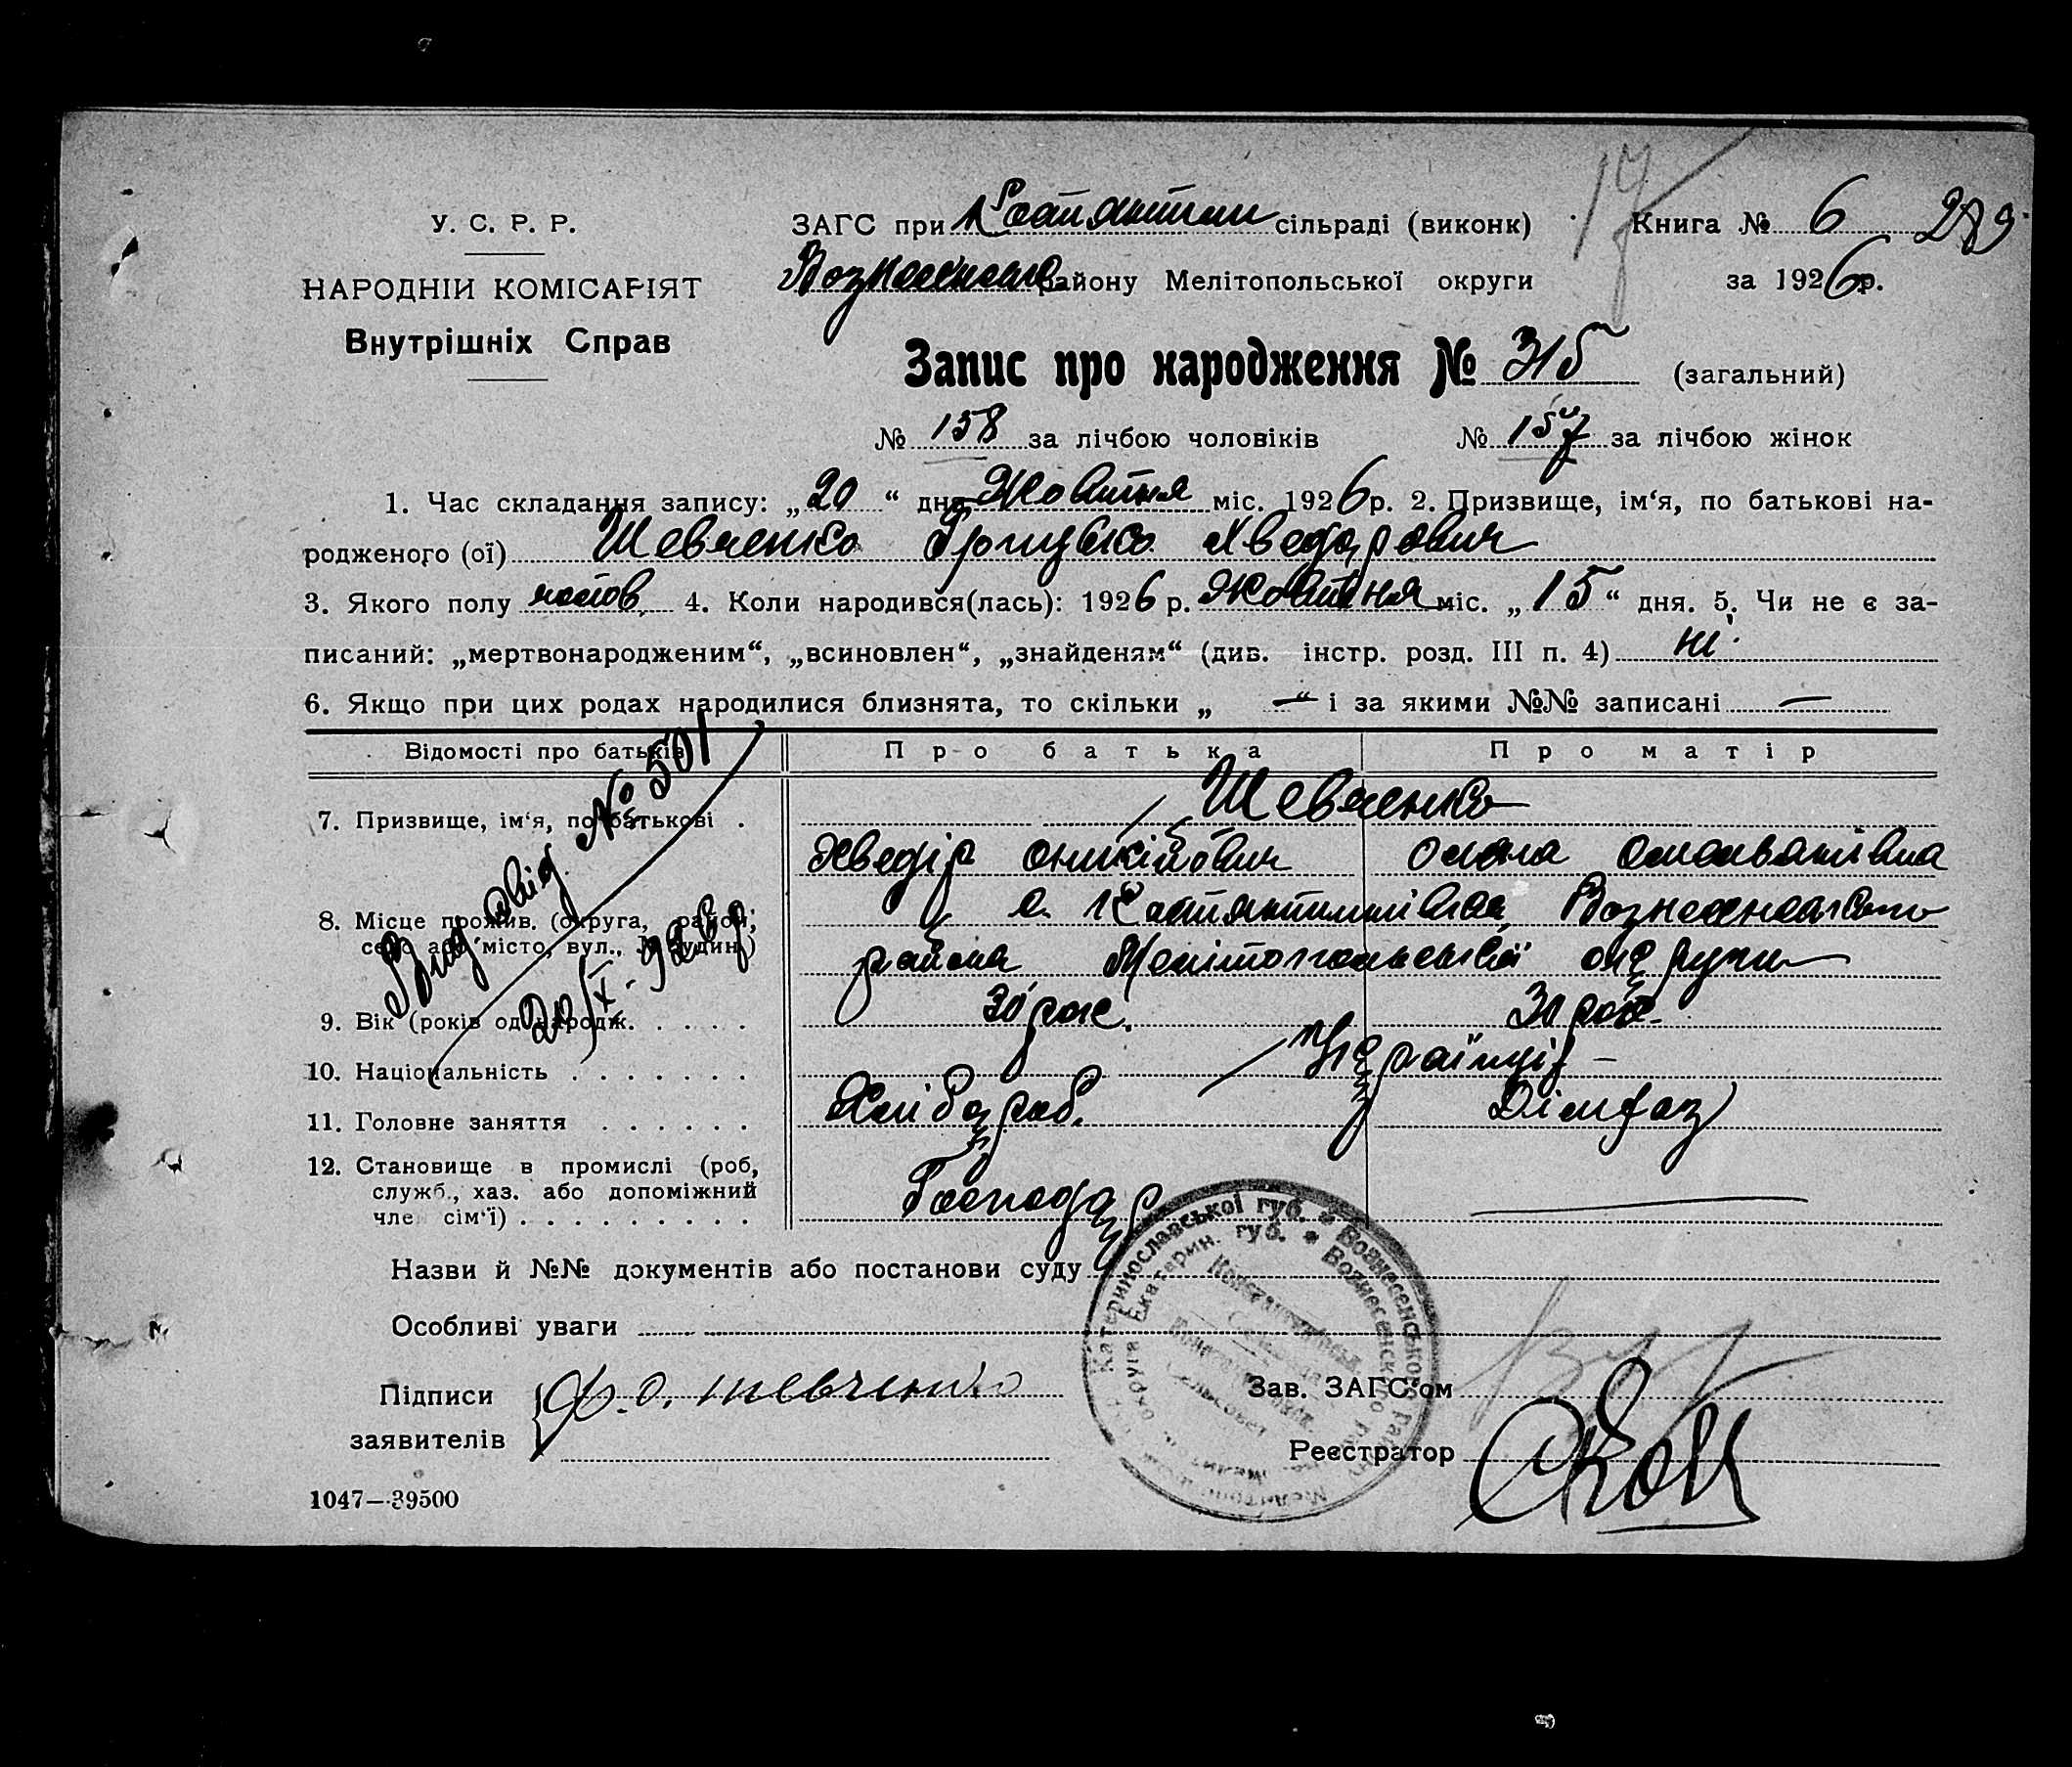 У. С. Р. Р.
НАРОДНІИ КОМІСАРІЯТ
Внутрішніх Справ
ЗАГС при Костянтин сільраді (виконк)
Вознесенсько району Мелітопольської округи
17
Книга № 6
за 1926 р.
Запис про народження № 315 (загальний)
№ 158 за лічбою чоловіків № 157 за лічбою жінок
1. Час складання запису: „20“ дня Жовтня міс. 1926 р. 2. Призвище, ім‘я, по батькові на-
родженого (ої) Шевченко Грицько Хведорович
3. Якого полу чолов. 4. Коли народився(лась): 1926 р. Жовтня міс. „15“ дня. 5. Чи не є за-
писаний: „мертвонародженим“, „всиновлен“, „знайденям“ (див. інстр. розд. III п. 4) ні.
6. Якщо при цих родах народилися близнята, то скільки „ —“ і за якими №№ записані —
Відомості про батьків Про батька Про матір
7. Призвище, ім‘я, по батькові . Шевченко
Хведір Оникійович Олена
8. Місце прожив. (округа, район, с. Костянтинівка Вознесенського
село або місто, вул., № будин.) района Мелітопольської округи
9. Вік (років од народж. . . . . . 30 рок. 30 рок.
10. Національність . . . . . . . Українці —
11. Головне заняття . . . . . . Хлібороб.
12. Становище в промислі (роб,
служб., хаз. або допоміжний
чле сім‘ї) . . . . . . . . . Господар
Вид. овід. № 501
20/X - 926 р
Назви й №№ документів або постанови суду
Особливі уваги
Підписи Ф. О. Шевченко
заявителів
Зав. ЗАГС‘ом
Реєстратор
Катеринославської губ. * Вознесенського району
округа Екатерин. губ. * Вознесенского
1047—39500